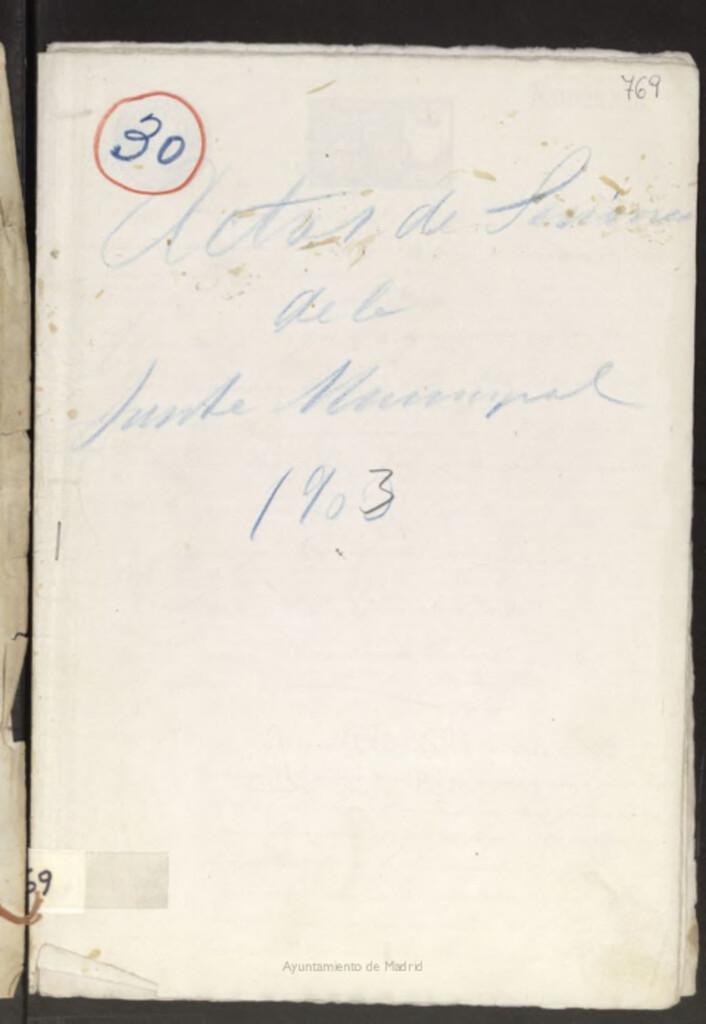 769
30
Actas de Sesiones
de la
Junta Municipal
1903
69
Ayuntamiento de Madrid